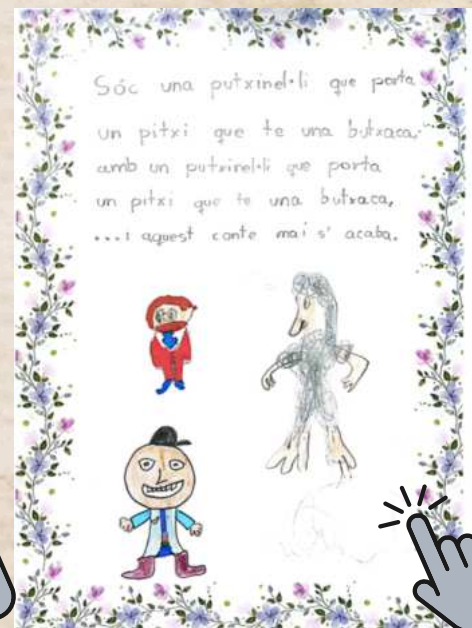 Sóc una putxinel·li que porta
un pitxi que te una butxaca,
amb un putxinel·li que porta
un pitxi que te una butxaca,
...i aquest conte mai s' acaba.